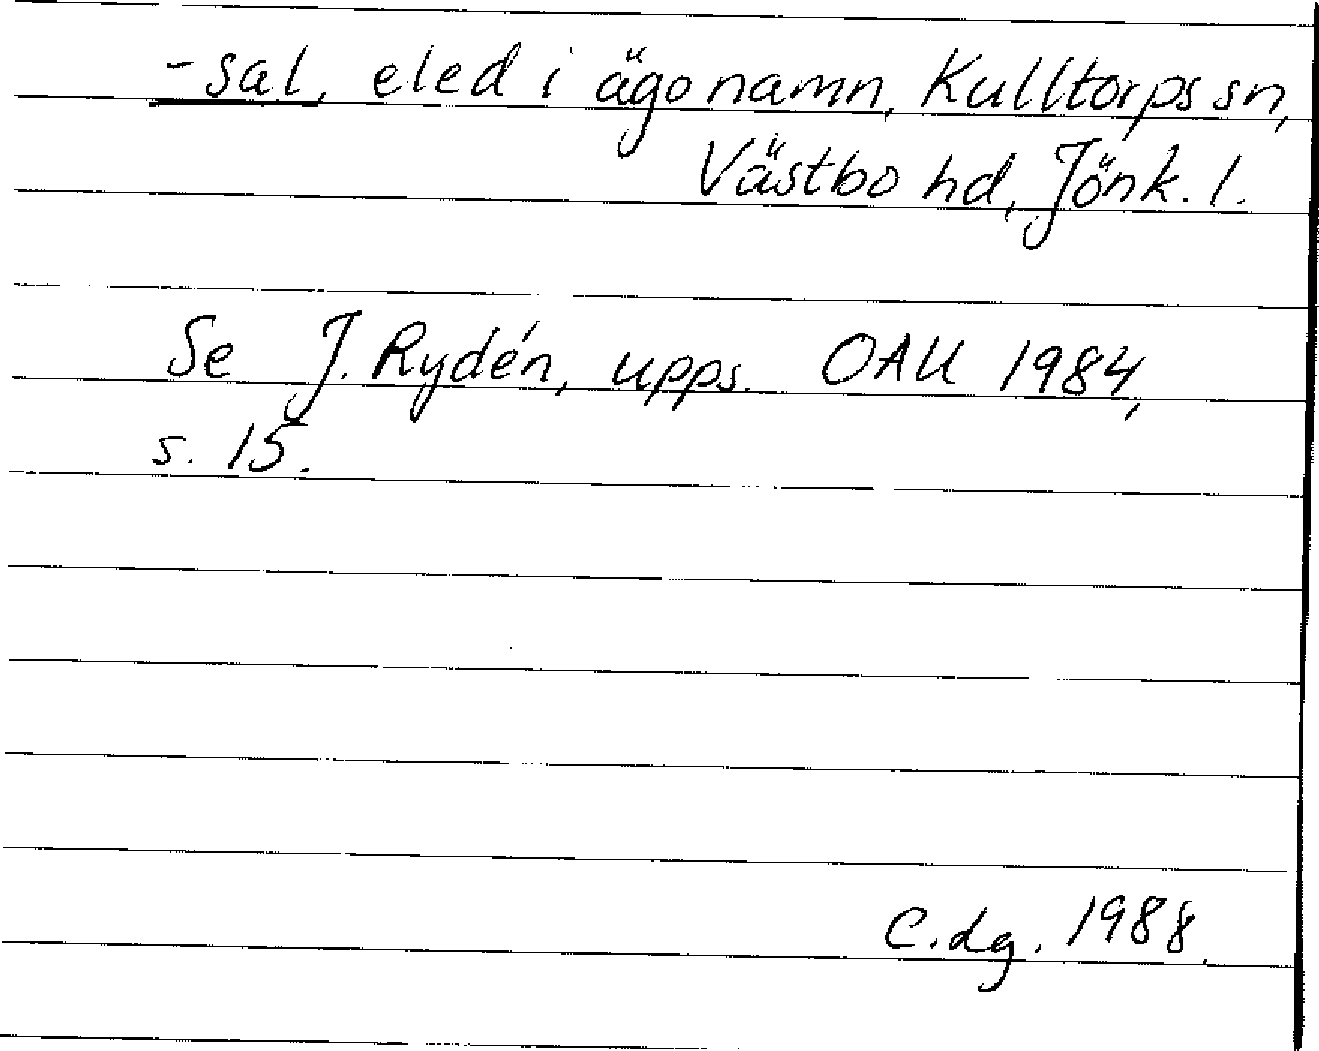 -sal, eled i ägonamn, Kulltorps sn,
Västbo hd, Jönk. l.
Se J. Rydén, upps. OAU 1984,
s. 15.
C.dg. 1988.